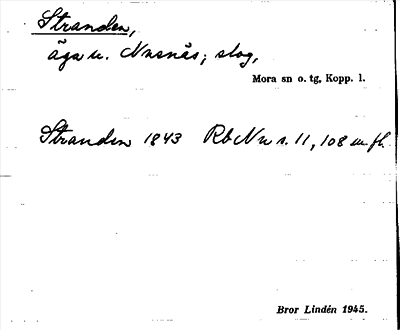 Stranden,
äga u. Nusnäs; slog,
Mora sn o. tg, Kopp. l.
Stranden 1843 Rb Nu s. 11, 108 m fl.
Bror Lindén 1945.